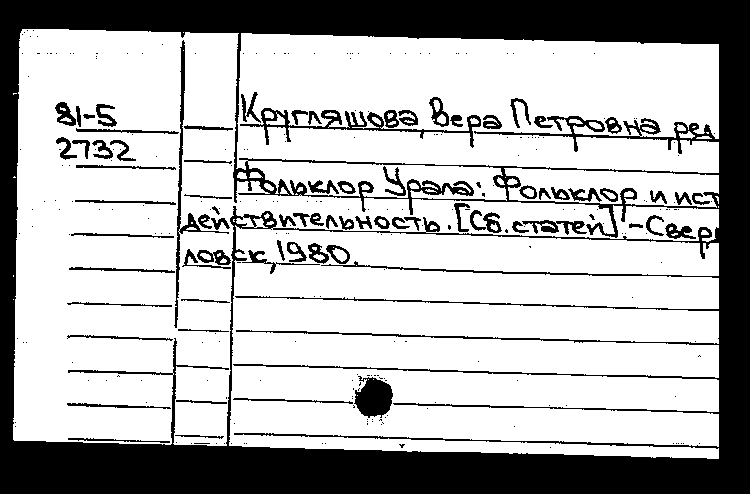 81-5
2732
Кругляшова, Вера Петровна, ред
Фольклор Урала: Фольклор и ист
действительность. [Сб. статей]. - Сверд
ловск, 1980.